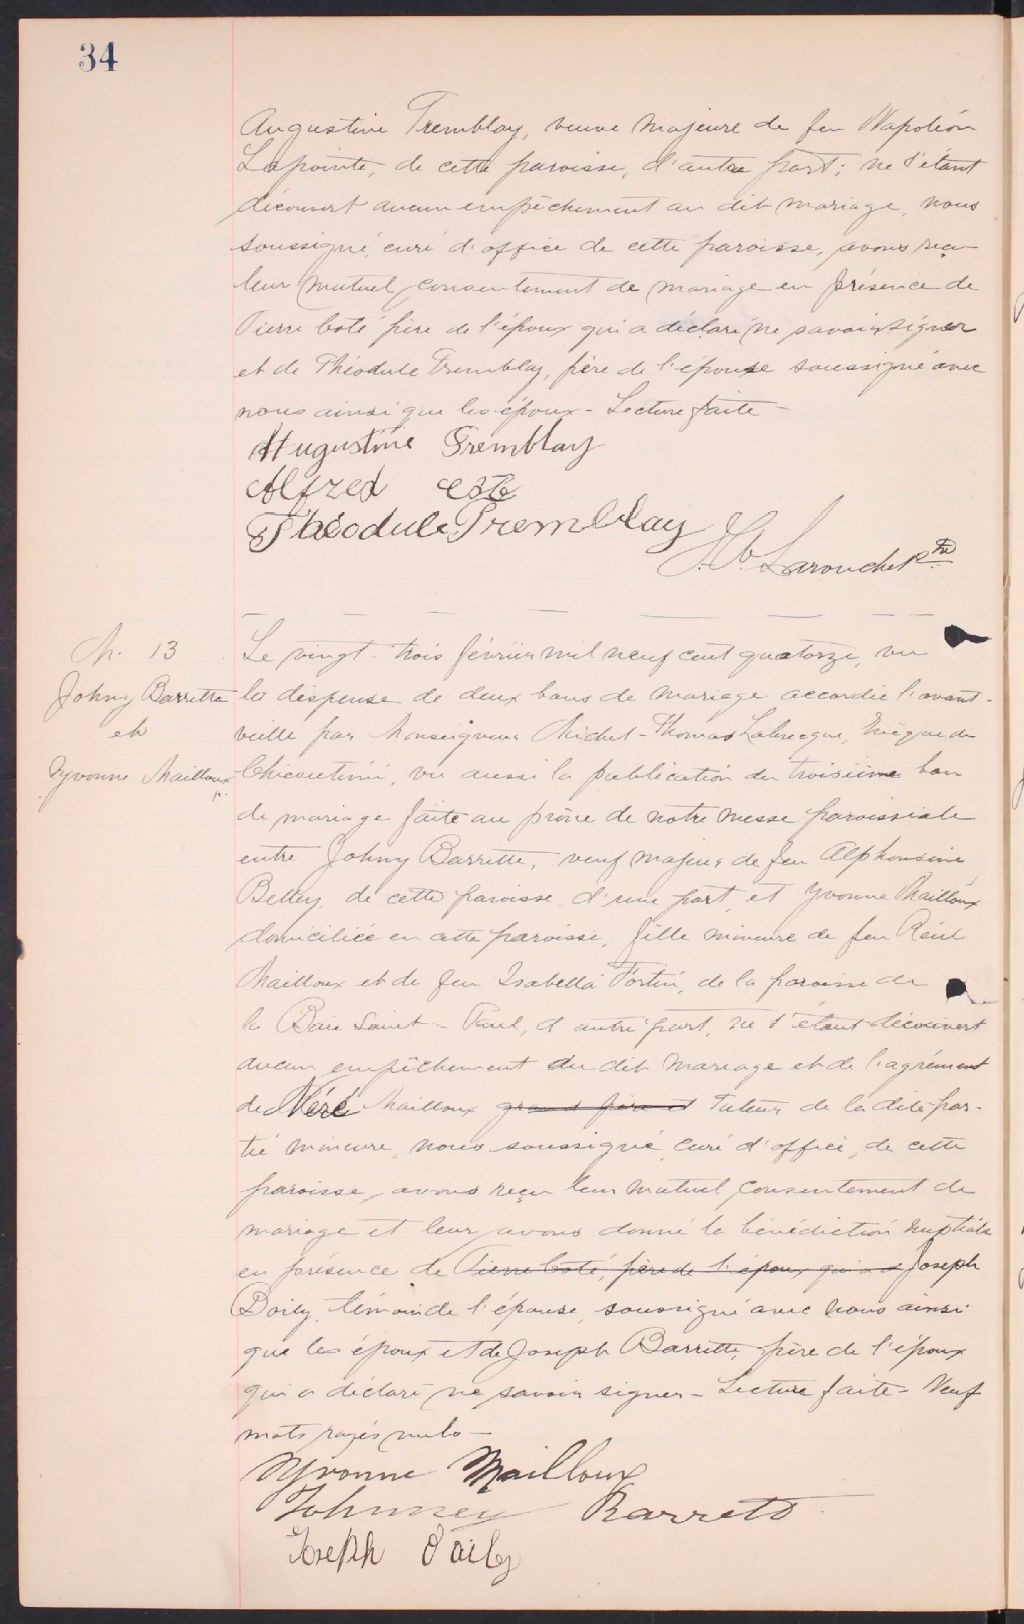 34
Augustine Tremblay, veuve majeure de feu Napoléon
Lapointe, de cette paroisse, d'autre part; ne s'étant
découvert aucun empêchement au dit mariage, nous
soussigné, curé d'office de cette paroisse, avons reçu
leur mutuel consentement de mariage en présence de
Pierre Coté père de l'époux qui a déclaré ne savoir signer
et de Théodule Tremblay, père de l'épouse soussigné avec
nous ainsi que les époux - Lecture faite -
Augustine Tremblay
Alfred Coté
Théodule Tremblay
Larouche Ptre
M. 13
Johny Barrette
et
Yvonne Mailloux
Le vingt-trois février mil neuf cent quatorze, vu
la dispense de deux bans de mariage accordée l'avant-
veille par Monseigneur Michel-Thomas Labrecque, évêque de
Chicoutimi, vu aussi la publication du troisième ban
de mariage faite au prône de notre messe paroissiale
entre Johny Barrette, veuf majeur de feu Alphonsine
Belley, de cette paroisse d'une part, et Yvonne Mailloux
domiciliée en cette paroisse, fille mineure de feu
Mailloux et de feu Isabella Fortin, de la paroisse de
la Baie Saint-Paul, d'autre part, ne s'étant découvert
aucun empêchement au dit mariage et de l'agrément
de Néré Mailloux grand père et tuteur de la dite par-
tie mineure, nous soussigné, curé d'office, de cette
paroisse, avons reçu leur mutuel consentement de
mariage et leur avons donné la bénédiction nuptiale
en présence de Pierre Coté, père de l'époux qui a Joseph
Doily, témoin de l'épouse, soussigné avec nous ainsi
que les époux et de Joseph Barrette, père de l'époux
qui a déclaré ne savoir signer - Lecture faite - Neuf
mots rayés nuls -
Yvonne Mailloux
Johnney Barrett
Joseph Daily